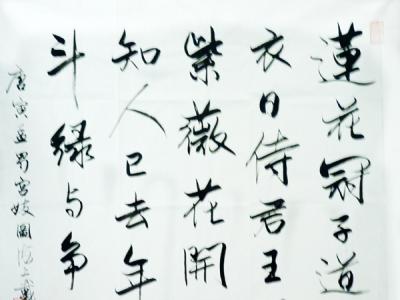 蓮花冠子道
衣日侍君王
紫薇花開
知人已去年
斗绿与争
唐寅孟蜀宫妓圖